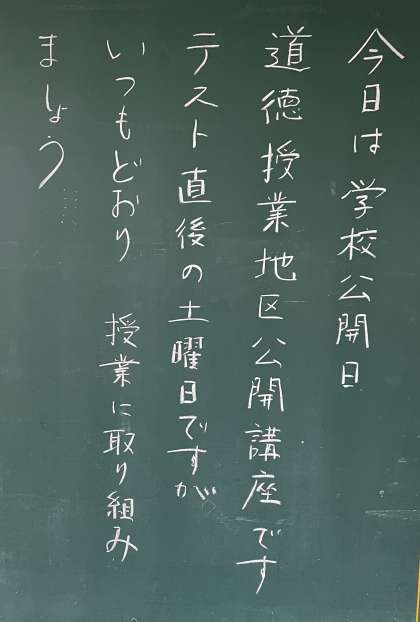 今日は学校公開日
道徳授業地区公開講座です
テスト直後の土曜日ですが
いつもどおり 授業に取り組み
ましょう